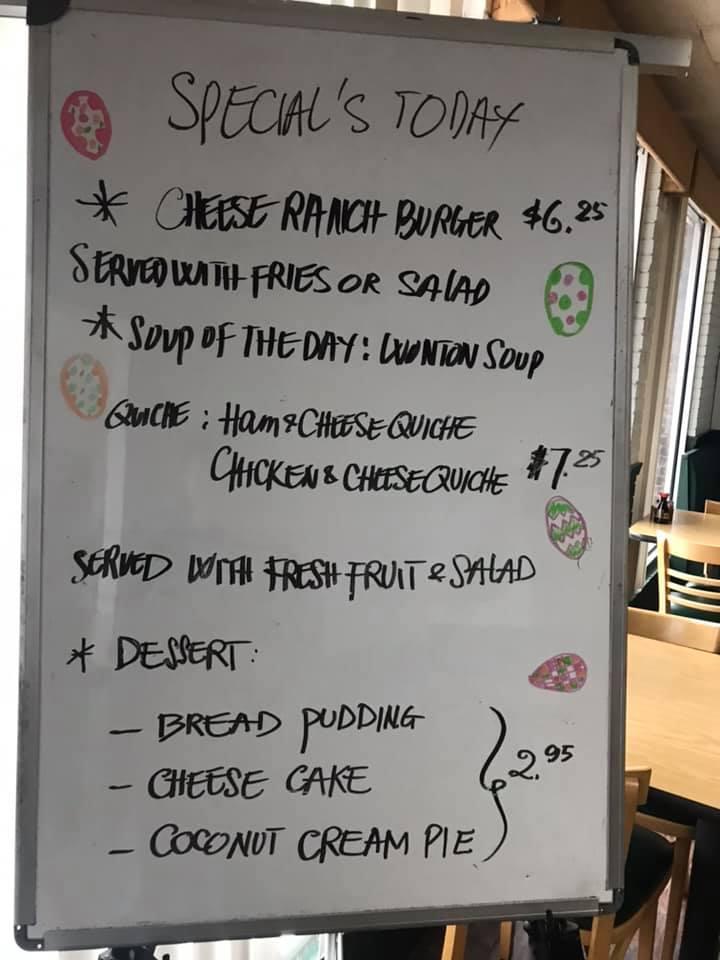 SPECIAL'S TODAY
* CHEESE RANCH BURGER $6.25
SERVED WITH FRIES OR SALAD
* SOUP OF THE DAY: WONTON SOUP
QUICHE: HAM & CHEESE QUICHE
CHICKEN & CHEESE QUICHE $7.25
SERVED WITH FRESH FRUIT & SALAD
* DESSERT:
- BREAD PUDDING
- CHEESE CAKE 2.95
- COCONUT CREAM PIE